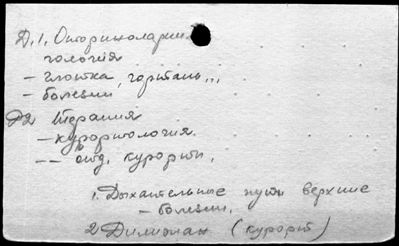 Д.1. Оториноларин
гология
- глотка, гортань,,,
- болезни
Д2 Терапия
- курортология.
-- отд. курорты,
1. Дыхательные пути верхние
- болезни.
2 Дилижан (курорт)